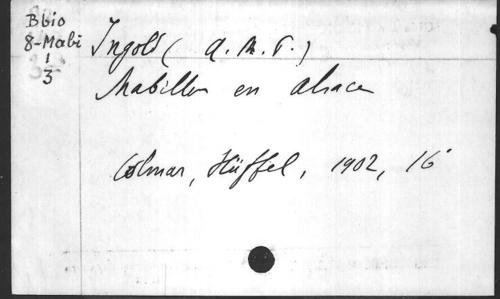 Bbio
8-Mabi
1
3
Ingold (A.M.P.)
Mabillon en Alsace
Colmar, Hüffel, 1902, 16°